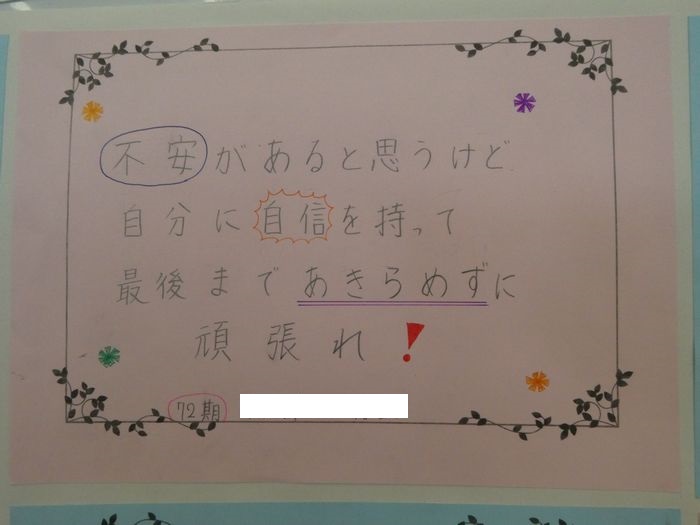 不安があると思うけど
自分に自信を持って
最後まであきらめずに
頑張れ!
72期